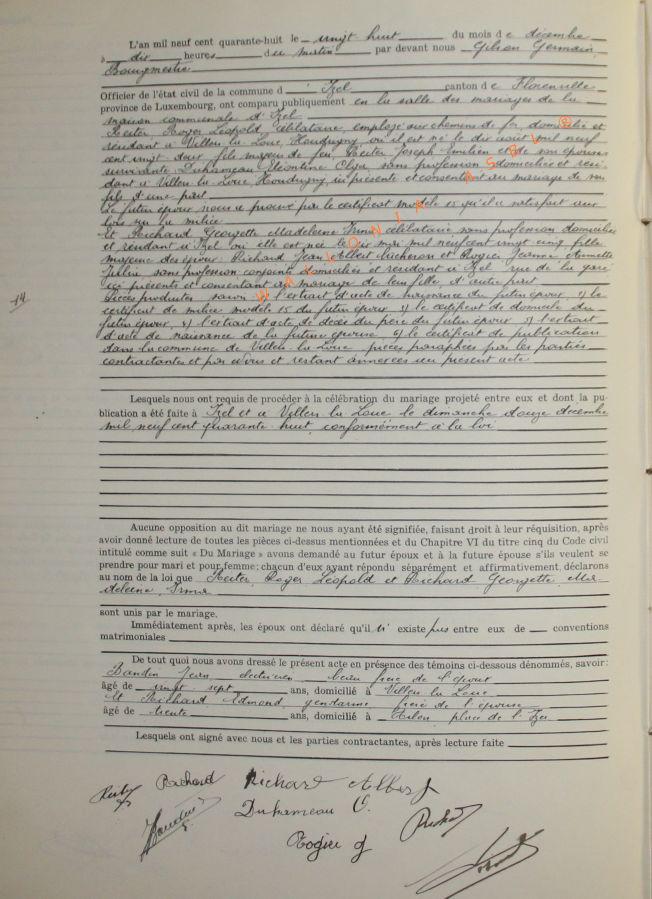 L'an mil neuf cent quarante-huit le vingt huit du mois de décembre
à dix heures du matin par devant nous Gilson Germain
Bourgmestre
Officier de l'état civil de la commune d'Izel canton de Florenville
province de Luxembourg, ont comparu publiquement en la salle des mariages de la
maison communale d'Izel
Reiter, Roger Léopold, célibataire, employé aux chemins de fer, domicilié et
résidant à Villers la Loue, Houdrigny où il est né le dix août mil neuf
cent vingt deux fils majeur de feu Reiter Joseph Emilien et de son épouse
survivante Duhameau Léontine Olga sans profession domiciliée et rési-
dant à Villers la Loue Houdrigny, ici présente et consentant au mariage de son
fils d'une part
Le futur époux nous a prouvé par le certificat modèle 15 qu'il a satisfait aux
lois sur la milice
Et Richard Georgette Madeleine Irma célibataire sans profession domiciliée
et résidant à Izel où elle est née le six mai mil neuf cent vingt cinq fille
majeure des époux Richard Jean Albert bûcheron et Rogier Jeanne
Julie sans profession conjoints domiciliés et résidant à Izel rue de la gare
ici présents et consentant au mariage de leur fille, d'autre part
Pièces produites savoir l'extrait d'acte de naissance du futur époux, le
certificat de milice modèle 15 du futur époux le certificat de domicile du
futur époux, l'extrait d'acte de décès du père du futur époux l'extrait
d'acte de naissance de la future épouse, le certificat de publication
dans la commune de Villers la Loue pièces paraphées par les parties
contractantes et par nous et restant annexées au présent acte
74
Lesquels nous ont requis de procéder à la célébration du mariage projeté entre eux et dont la pu-
blication a été faite à Izel et à Villers la Loue le dimanche douze décembre
mil neuf cent quarante huit, conformément à la loi
Aucune opposition au dit mariage ne nous ayant été signifiée, faisant droit à leur réquisition, après
avoir donné lecture de toutes les pièces ci-dessus mentionnées et du Chapitre VI du titre cinq du Code civil
intitulé comme suit « Du Mariage » avons demandé au futur époux et à la future épouse s'ils veulent se
prendre pour mari et pour femme; chacun d'eux ayant répondu séparément et affirmativement, déclarons
au nom de la loi que Reiter, Roger Léopold et Richard Georgette, Ma-
deleine, Irma
sont unis par le mariage.
Immédiatement après, les époux ont déclaré qu'il n'existe pas entre eux de conventions
matrimoniales
De tout quoi nous avons dressé le présent acte en présence des témoins ci-dessous dénommés, savoir:
Baudin Jean, électricien beau frère de l'époux
âgé de vingt sept ans, domicilié à Villers la Loue
et Richard Edmond, gendarme frère de l'épouse
âgé de trente ans, domicilié à Arlon, place de l'Yser
Lesquels ont signé avec nous et les parties contractantes, après lecture faite
Richard Richard Albert
Duhameau O.
Rogier J